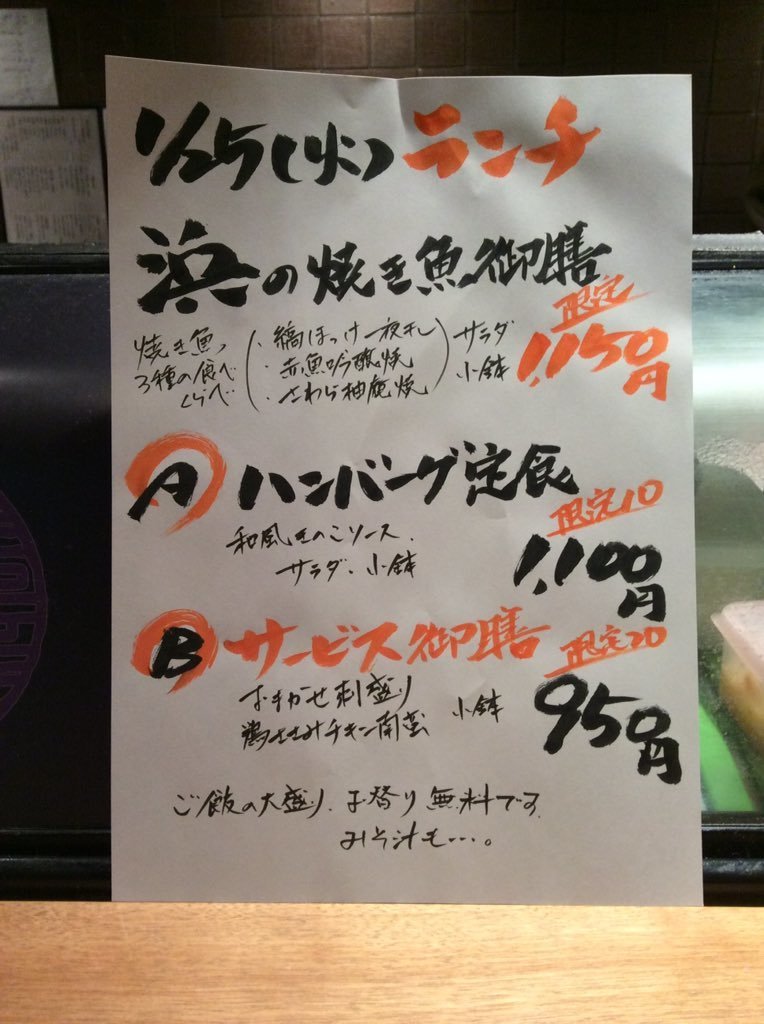 1/25(火)ランチ
浜の焼き魚御膳
限定
焼き魚
3種の食べ
くらべ
(・縞ほっけ一夜干し
・赤魚吟醸焼
・さわら柚庵焼)
サラダ
小鉢
1,150円
A ハンバーグ定食
限定10
和風きのこソース、
サラダ、小鉢
1,100円
B サービス御膳
限定20
おまかせ刺盛り
鶏ささみチキン南蛮
小鉢
950円
ご飯の大盛り、お替り無料です
みそ汁も…。